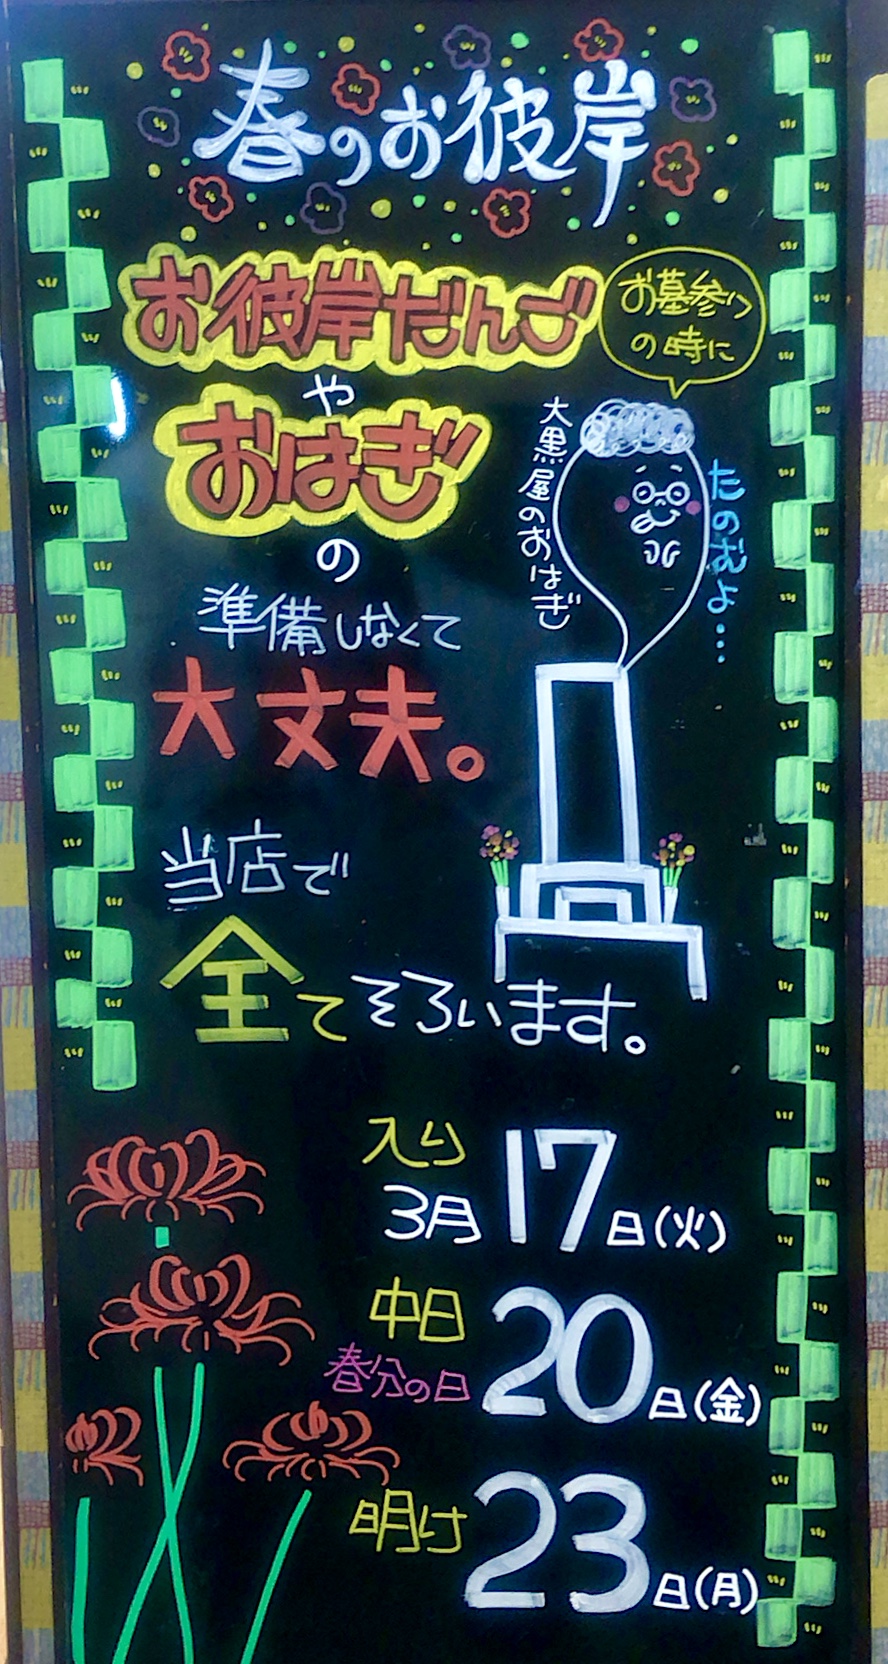 春のお彼岸
お彼岸だんご
や
おはぎ
の
準備しなくて
大丈夫。
お墓参り
の時に
大黒屋のおはぎ
たのむよ…
当店で
全てそろいます。
入り
3月17日(火)
中日
春分の日
20日(金)
明け
23日(月)